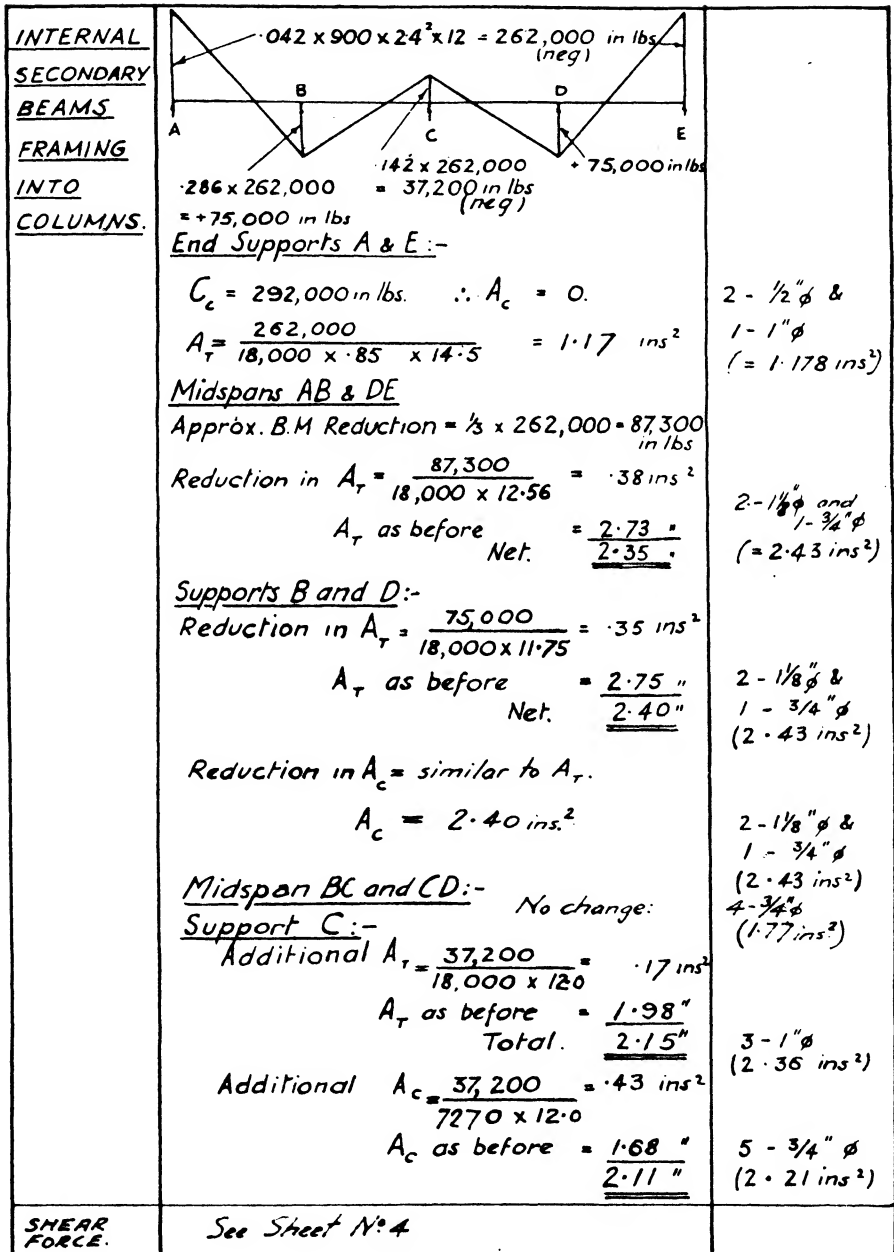 INTERNAL
SECONDARY
BEAMS
FRAMING
INTO
COLUMNS.
·042 x 900 x 24² x 12 = 262,000 in lbs
(neg)
A B C D E
·286 x 262,000
= +75,000 in lbs
·142 x 262,000
= 37,200 in lbs
(neg)
+ 75,000 in lbs
End Supports A & E :-
C_c = 292,000 in lbs. ∴ A_c = 0.
2 - 1/2"φ &
A_T = 262,000 / 18,000 x ·85 x 14·5 = 1·17 ins²
1 - 1"φ
(= 1·178 ins²)
Midspans AB & DE
Approx. B.M Reduction = 1/3 x 262,000 = 87,300
in lbs
Reduction in A_T = 87,300 / 18,000 x 12·56 = ·38 ins²
A_T as before = 2·73 "
Net. 2·35 "
2 - 1⅛"φ and
1 - 3/4"φ
(= 2·43 ins²)
Supports B and D:-
Reduction in A_T = 75,000 / 18,000 x 11·75 = ·35 ins²
A_T as before = 2·75 "
Net. 2·40 "
2 - 1⅛"φ &
1 - 3/4"φ
(2·43 ins²)
Reduction in A_c = similar to A_T.
A_c = 2·40 ins.²
2 - 1⅛"φ &
1 - 3/4"φ
(2·43 ins²)
Midspan BC and CD:-
No change:
4 - 3/4"φ
(1·77 ins²)
Support C:-
Additional A_T = 37,200 / 18,000 x 12·0 = ·17 ins²
A_T as before = 1·98"
Total. 2·15"
3 - 1"φ
(2·36 ins²)
Additional A_c = 37,200 / 7270 x 12·0 = ·43 ins²
A_c as before = 1·68 "
2·11 "
5 - 3/4" φ
(2·21 ins²)
SHEAR
FORCE.
See Sheet Nº 4